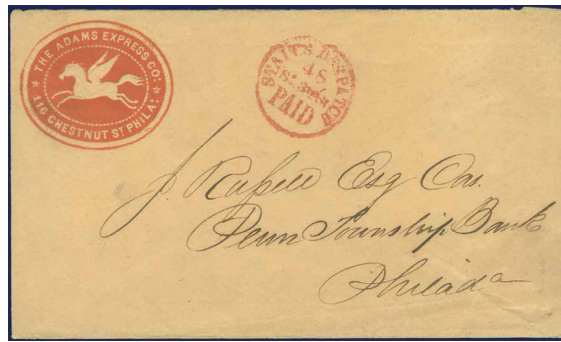 THE ADAMS EXPRESS CO:
116 CHESTNUT ST PHILA:
STAIT'S DESPATCH
48
PAID
J. Rufsell Esq Cas.
Penn Township Bank
Philada